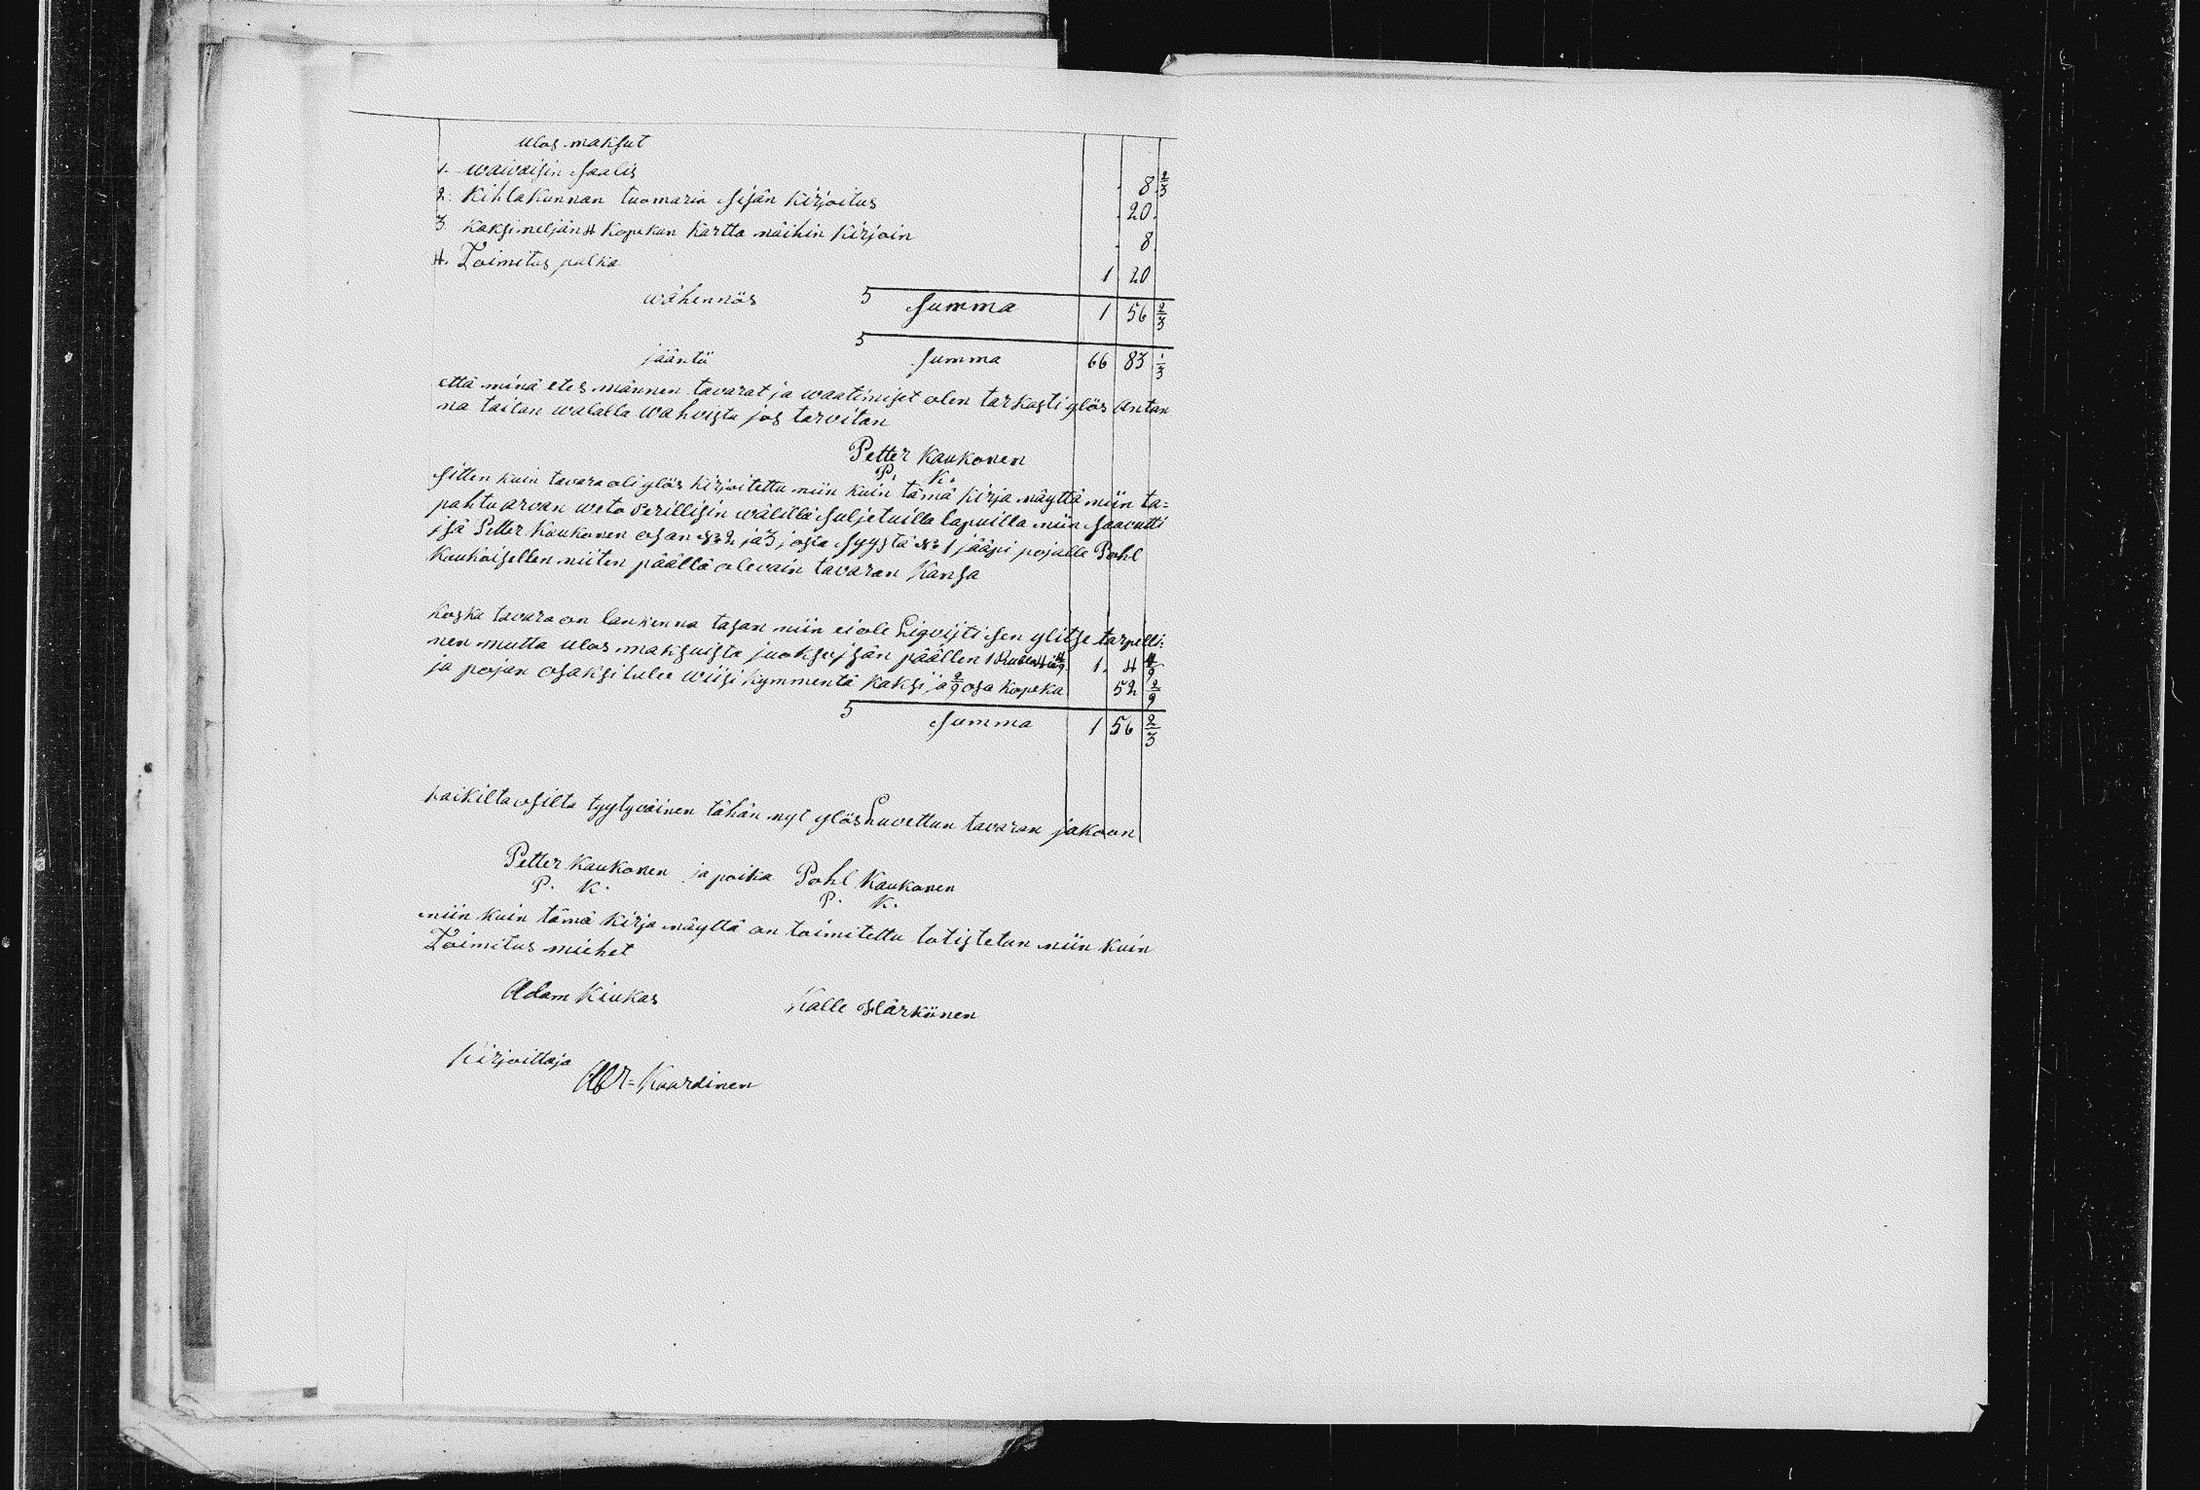 ulos maksut
1. waivaisin saalis 8 2/3
2. Kihlakunnan tuomarin sisän kirjoitus 20
3. Kaksi neljän 4 kopekan kartta näihin kirjoin 8
4. Toimitus palka 1 20
wähennös 5 summa 1 56 2/3
jääntö 5 summa 66 83 1/3
että minä etes männen tavarat ja waatimiset olen tarkasti ylös antan
na taitan walalla wahvista jos tarvitan
Petter Kaukonen
P. K.
sitten kuin tavara oli ylös kirjoitettu niin kuin tämä kirja näyttä niin ta=
pahtu arvan weto Perillisin wälillä suljetuilla lapuilla niin saavutti
isä Petter Kaukonen osan No 2 ja 3 josta syystä No 1 jääpi pojalle Pohl
Kaukoisellen niiten päällä olevain tavaran Kansa
Koska tavara on lankenna tasan niin ei ole Liqvijti sen ylitse tarpelli:
nen mutta ulos maksuista juoksee isän päällen 1 Rubla 4 4/9 1 4 4/9
ja pojan osaksi tulee wiisi kymmentä kaksi ja 2/9 osa kopeka 52 2/9
5 summa 1 56 2/3
kaikilta osilta tyytyväinen tähän nyt ylös Luvettun tavaran jakoon
Petter Kaukonen ja poika Pohl Kaukonen
P. K. P. K.
niin kuin tämä kirja näyttä on toimitettu totistetan niin kuin
Toimitus miehet
Adam Kiukas Kalle Härkönen
Kirjoittaja
Abr= Kaurdinen